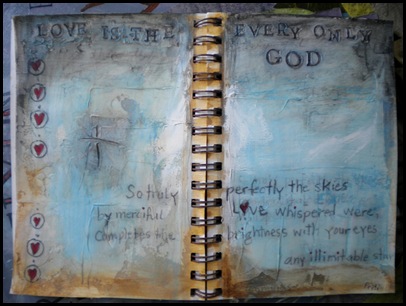 LOVE IS THE EVERY ONLY
GOD
So truly perfectly the skies
by merciful LOVE whispered were,
completes the brightness with your eyes
any illimitable star